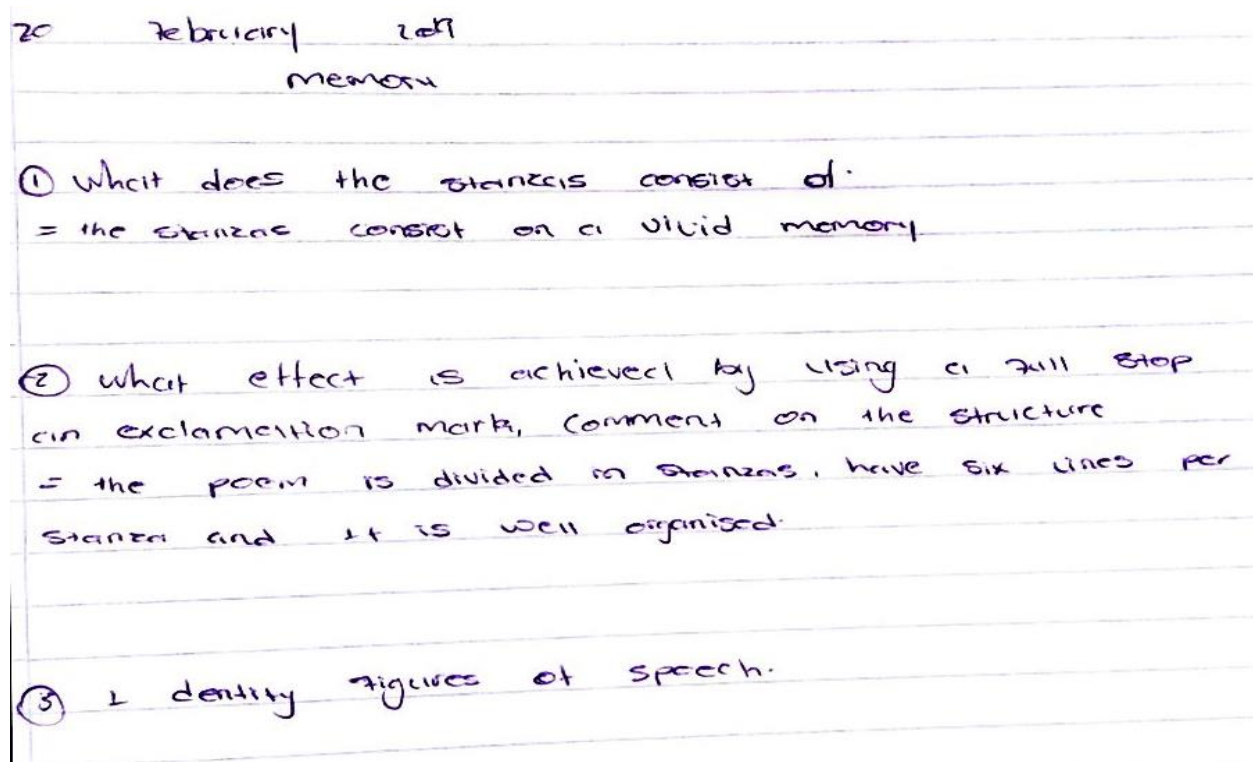 20 February 2017
memory
① What does the stanzas consist of.
= the stanzas consist on a vivid memory
② what effect is achieved by using a full stop
an exclamation mark, comment on the structure
= the poem is divided in stanzas, have six lines per
stanza and it is well organised.
③ Identify figures of speech.